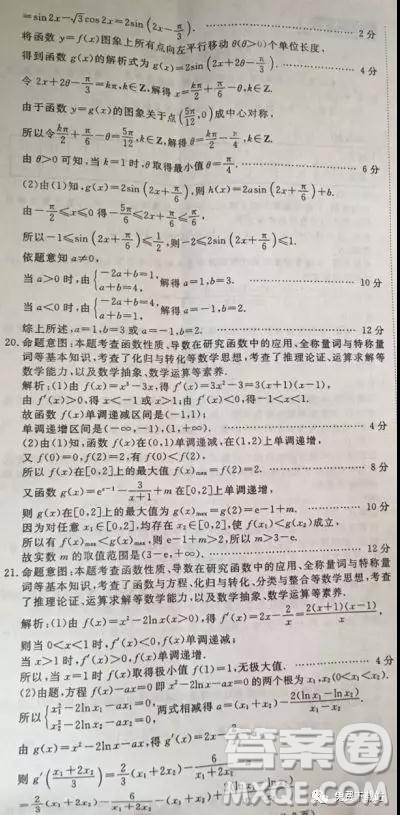 =sin 2x−√3cos 2x=2sin(2x−π/3). …… 2分
将函数 y=f(x)图象上所有点向左平行移动 θ(θ>0)个单位长度,
得到函数 g(x)的解析式为 g(x)=2sin(2x+2θ−π/3). …… 4分
令 2x+2θ−π/3=kπ,k∈Z,解得 x=kπ/2+π/6−θ,k∈Z.
由于函数 y=g(x)的图象关于点(5π/12,0)成中心对称,
所以令kπ/2+π/6−θ=5π/12,k∈Z,解得 θ=kπ/2−π/4,k∈Z.
由 θ>0 可知,当 k=1 时,θ取得最小值 θ=π/4. …… 6分
(2)由(1)知,g(x)=2sin(2x+π/6),则 h(x)=2asin(2x+π/6)+b.
由−π/2≤x≤0 得−5π/6≤2x+π/6≤π/6,
所以−1≤sin(2x+π/6)≤1/2,则−2≤2sin(2x+π/6)≤1.
依题意知 a≠0,
当 a>0 时,由{−2a+b=1, a+b=4, 解得 a=1,b=3. …… 10分
当 a<0 时,由{−2a+b=4, a+b=1, 解得 a=−1,b=2.
综上所述,a=1,b=3 或 a=−1,b=2. …… 12分
20. 命题意图:本题考查函数性质、导数在研究函数中的应用、全称量词与特称量
词等基本知识,考查了化归与转化等数学思想,考查了推理论证、运算求解等
数学能力,以及数学抽象、数学运算等素养.
解析:(1)由 f(x)=x³−3x,得 f′(x)=3x²−3=3(x+1)(x−1),
由 f′(x)>0,得 x<−1 或 x>1;由 f′(x)<0,得−1<x<1.
故函数 f(x)单调递减区间是(−1,1);
单调递增区间是(−∞,−1),(1,+∞). …… 4分
(2)由(1)知,函数 f(x)在(0,1)单调递减,在(1,2)上单调递增,
又 f(0)=0,f(2)=2,有 f(0)<f(2),
所以 f(x)在[0,2]上的最大值 f(x)max=f(2)=2. …… 8分
又函数 g(x)=eˣ⁻¹−3/(x+1)+m 在[0,2]上单调递增,
则 g(x)在[0,2]上的最大值为 g(x)max=g(2)=e−1+m. …… 10分
因为对任意 x₁∈[0,2],均存在 x₂∈[0,2],使 f(x₁)<g(x₂)成立,
所以有 f(x)max<g(x)max,则 e−1+m>2,所以 m>3−e.
故实数 m 的取值范围是(3−e,+∞). …… 12分
21. 命题意图:本题考查函数性质、导数在研究函数中的应用、全称量词与特称量
词等基本知识,考查了函数与方程、化归与转化、分类与整合等数学思想,考查
了推理论证、运算求解等数学能力,以及数学抽象、数学运算等素养.
解析:(1)由 f(x)=x²−2ln x(x>0),得 f′(x)=2x−2/x=2(x+1)(x−1)/x,
则当 0<x<1 时,f′(x)<0,f(x)单调递减;
当 x>1 时,f′(x)>0,f(x)单调递增.
所以,当 x=1 时 f(x)取得极小值 f(1)=1,无极大值. …… 4分
(2)由题,方程 f(x)−ax=0 即 x²−2ln x−ax=0 的两个根为 x₁,x₂(0<x₁<x₂).
所以{x₁²−2ln x₁−ax₁=0, x₂²−2ln x₂−ax₂=0, 两式相减得 a=(x₁+x₂)−2(ln x₁−ln x₂)/(x₁−x₂).
由 g(x)=x²−2ln x−ax,得 g′(x)=2x−
则 g′((x₁+2x₂)/3)=2/3(x₁+2x₂)−6/(x₁+2x₂)
=2/3(x₁+2x₂)−6/(x₁+2x₂)−(x₁+x₂)+
答案圈